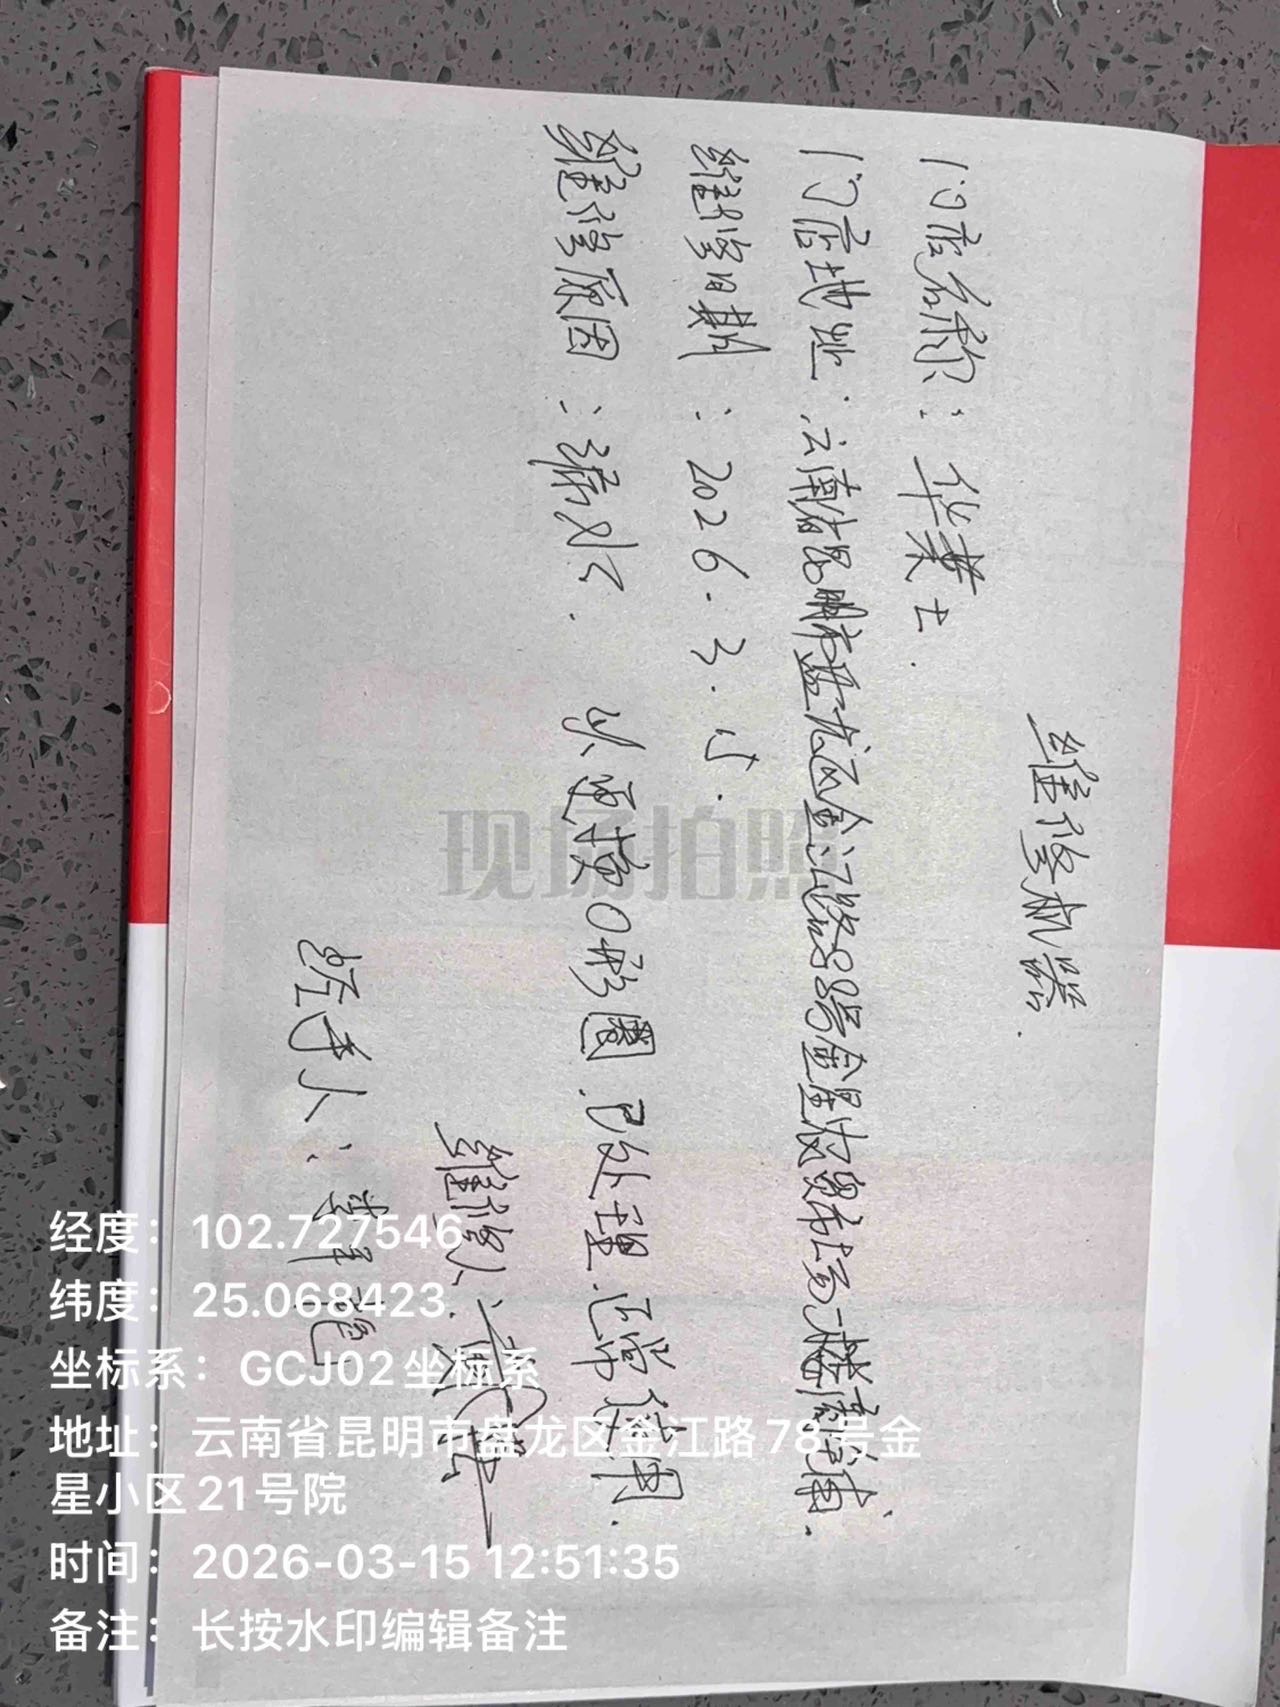 维修机器.
门店名称: 华莱士.
门店地址: 云南省昆明市盘龙区金江路88号金星农贸市场一楼商铺.
维修日期: 2026.3.15.
维修原因: 漏水. 以更换O形圈.已处理.正常使用.
维修人:
经手人: 李
现场拍照
经度: 102.727546
纬度: 25.068423
坐标系: GCJ02坐标系
地址: 云南省昆明市盘龙区金江路78号金
星小区21号院
时间: 2026-03-15 12:51:35
备注: 长按水印编辑备注